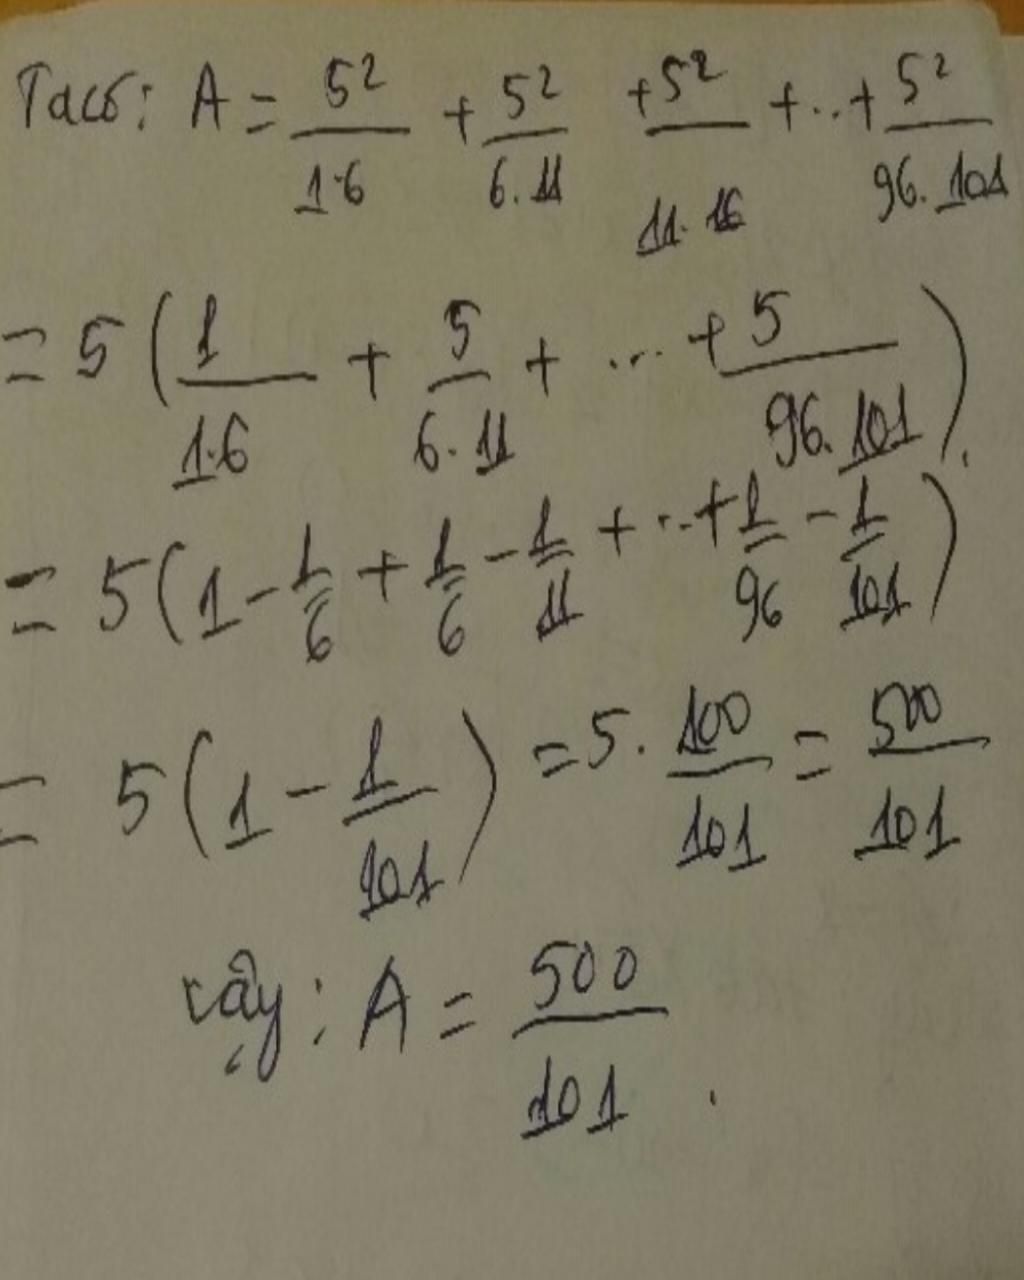 Taco: A = 5²/1·6 + 5²/6.11 + 5²/11.16 + ... + 5²/96.101
= 5 ( 1/1.6 + 5/6.11 + ... + 5/96.101 ).
= 5 ( 1 - 1/6 + 1/6 - 1/11 + ... + 1/96 - 1/101 )
= 5 ( 1 - 1/101 ) = 5. 100/101 = 500/101
vậy: A = 500/101 .